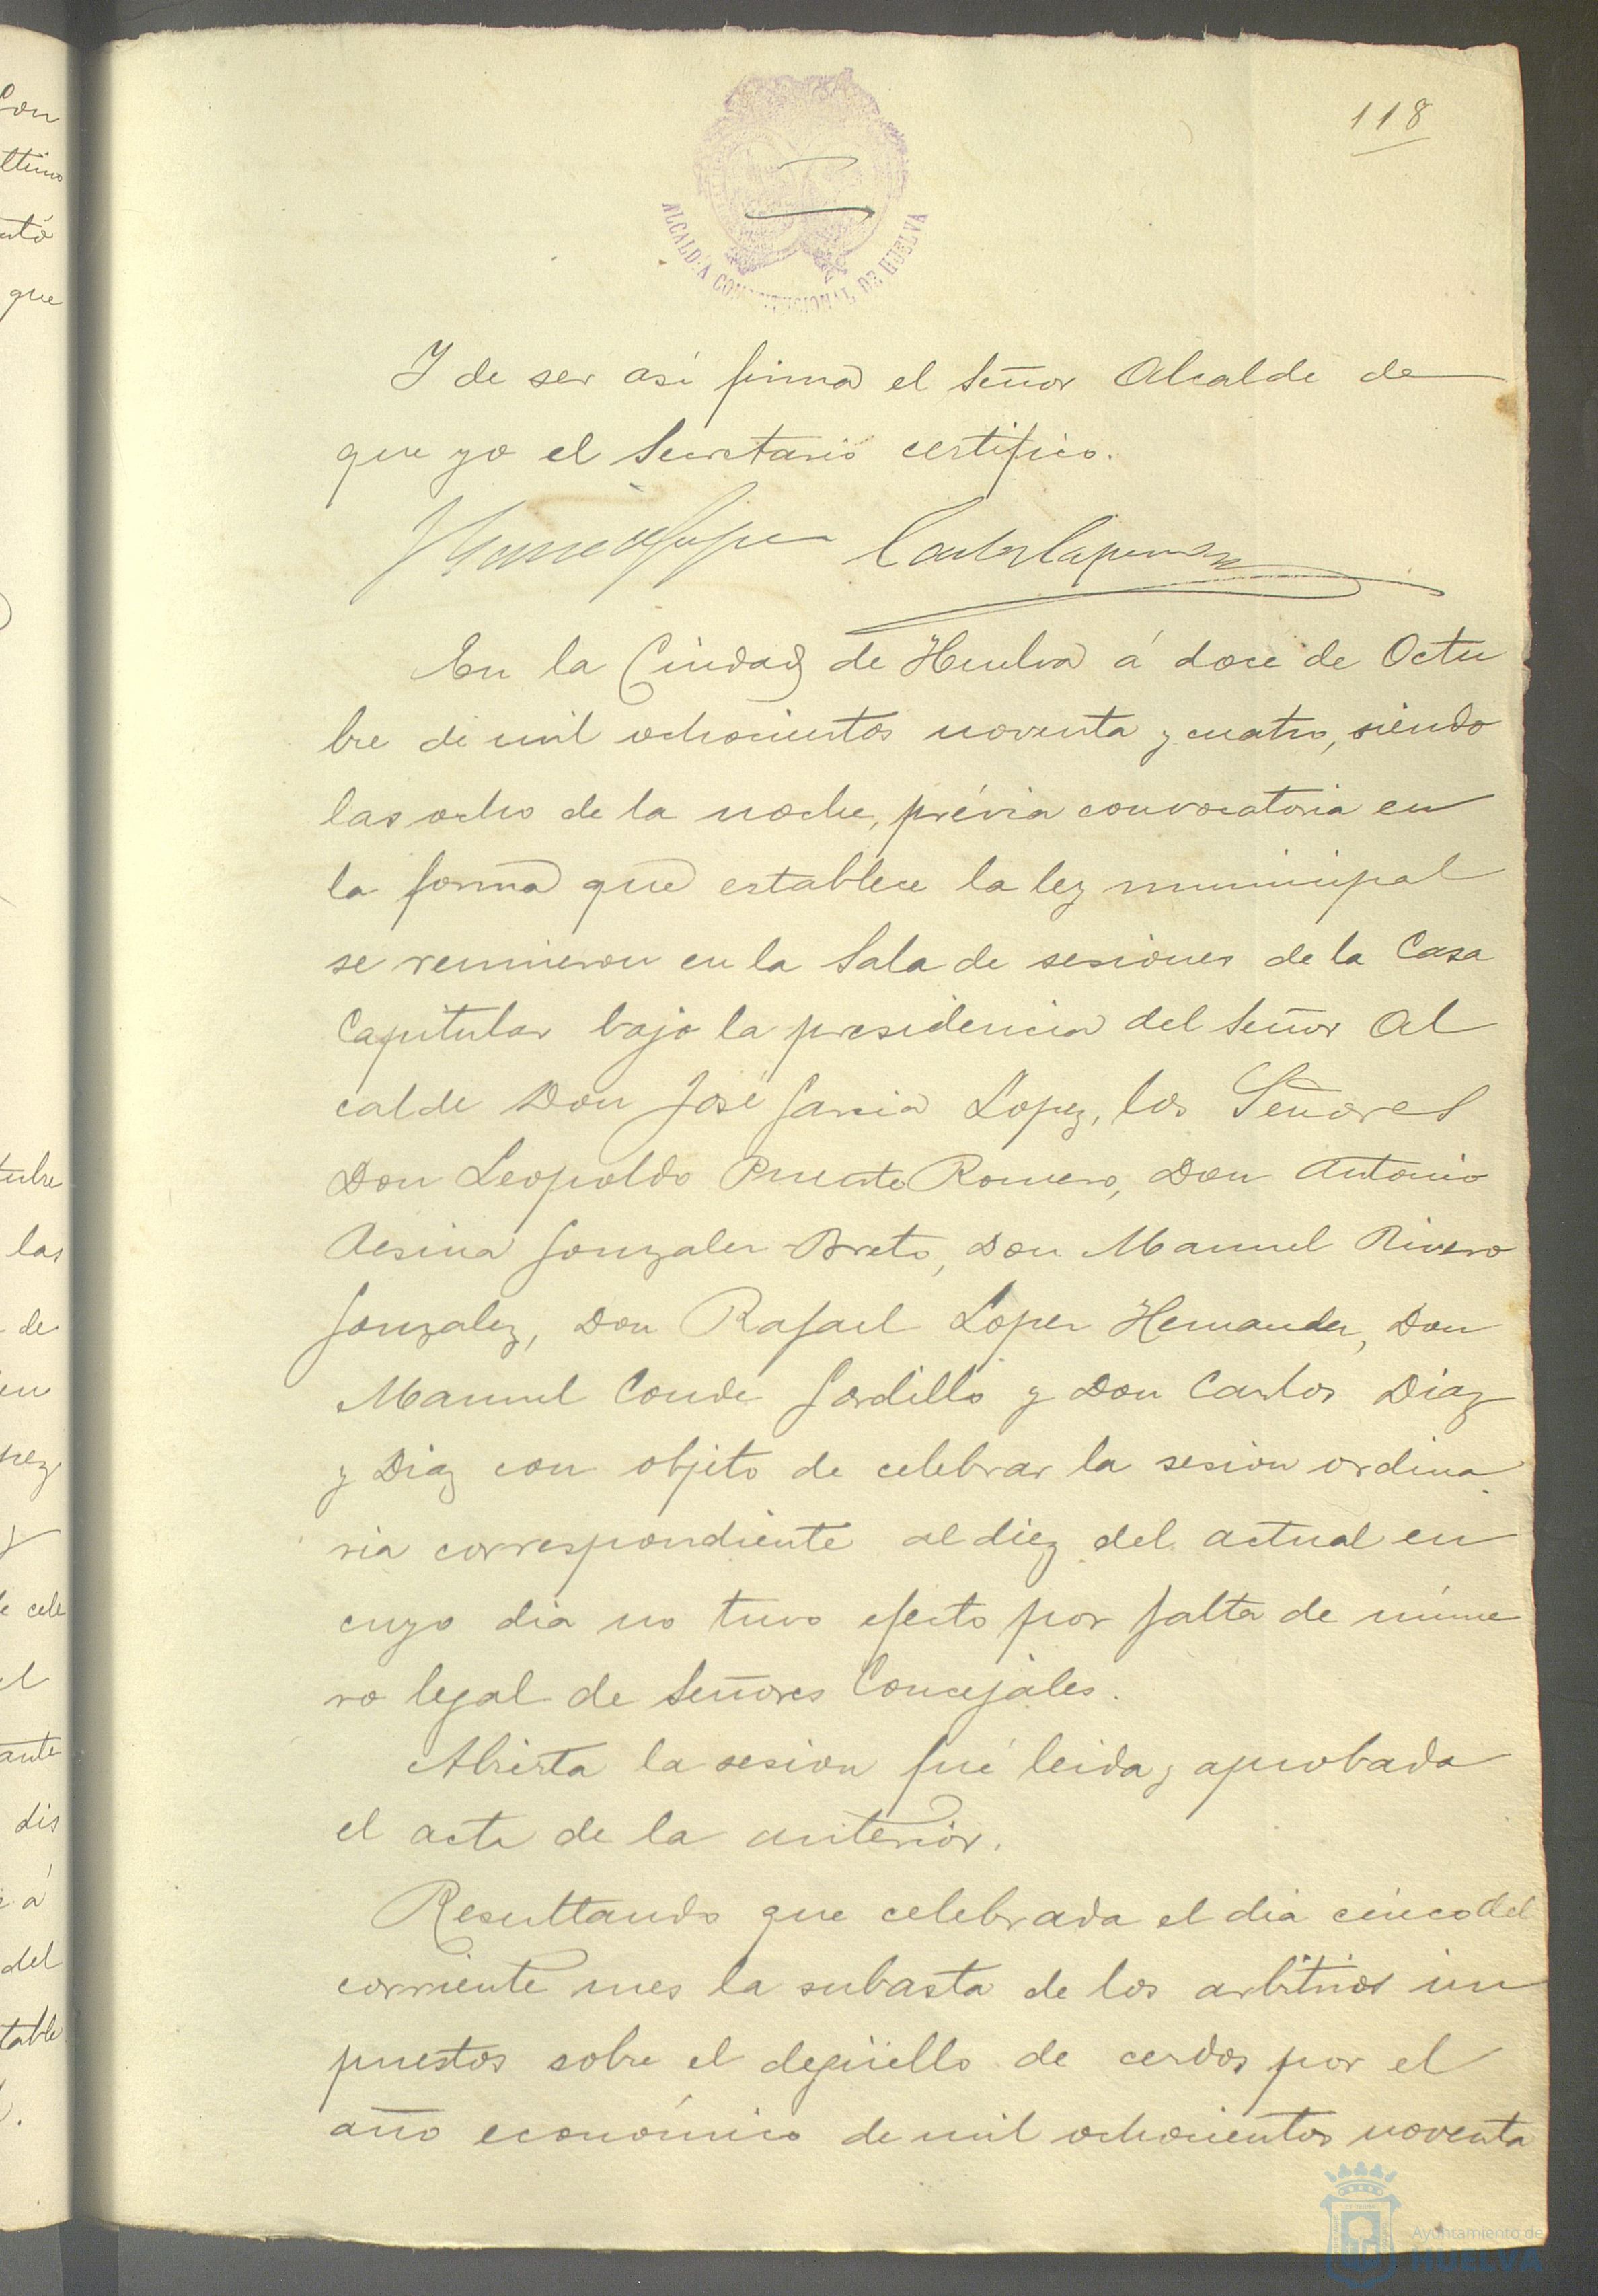 118
ALCALDIA CONSTITUCIONAL DE HUELVA
Y de ser así firma el Señor Alcalde de
que yo el Secretario certifico.
En la Ciudad de Huelva á doce de Octu
bre de mil ochocientos noventa y cuatro, siendo
las ocho de la noche, prévia convocatoria en
la forma que establece la ley municipal
se reunieron en la Sala de sesiones de la Casa
Capitular bajo la presidencia del Señor Al
calde Don José Garcia Lopez, los Señores
Don Leopoldo Puente Romero, Don Antonio
Gonzalez Don Manuel Rivero
Gonzalez, Don Rafael Lopez Hernandez, Don
Manuel Conde Gordillo y Don Carlos Diaz
y Diaz con objeto de celebrar la sesion ordina
ria correspondiente al diez del actual en
cuyo dia no tuvo efecto por falta de núme
ro legal de Señores Concejales.
Abierta la sesion fué leida y aprobada
el acta de la anterior.
Resultando que celebrada el dia cinco del
corriente mes la subasta de los arbitrios im
puestos sobre el degüello de cerdos por el
año económico de mil ochocientos noventa
Ayuntamiento de
HUELVA
con
que
las
de
en
pez
y
e cele
el
ante
dis
á
del
table